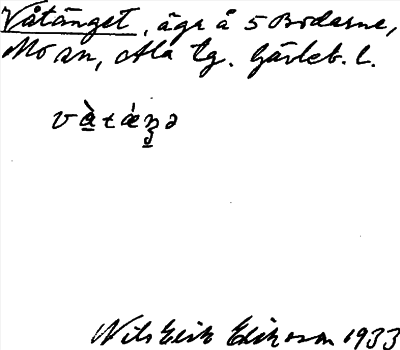 Våtänget, äga å 5 Bodarne,
Mo sn, Ala tg. Gävleb. l.
Nils Erik Eriksson 1933